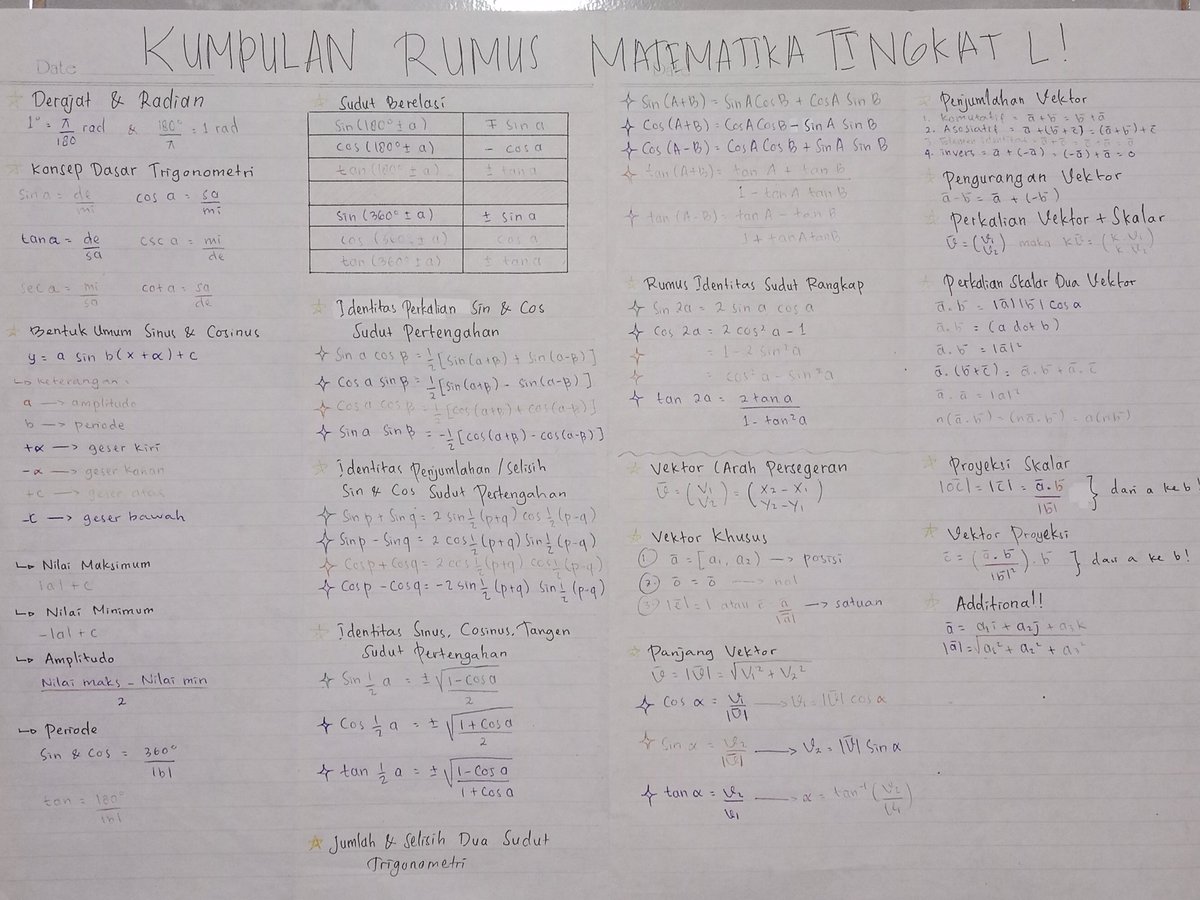 KUMPULAN RUMUS MATEMATIKA TINGKAT L!
Date
Derajat & Radian
1° = π/180 rad & 180°/π = 1 rad
Konsep Dasar Trigonometri
sin a = de/mi cos a = sa/mi
tan a = de/sa csc a = mi/de
sec a = mi/sa cot a = sa/de
Bentuk Umum Sinus & Cosinus
y = a sin b(x + α) + c
↳ keterangan:
a → amplitudo
b → periode
+α → geser kiri
-α → geser kanan
+c → geser atas
-c → geser bawah
↳ Nilai Maksimum
|a| + c
↳ Nilai Minimum
-|a| + c
↳ Amplitudo
Nilai maks - Nilai min / 2
↳ Periode
Sin & Cos = 360°/|b|
tan = 180°/|b|
Sudut Berelasi
sin(180° ± a) ∓ sin a
cos(180° ± a) - cos a
tan(180° ± a) ± tan a
sin(360° ± a) ± sin a
cos(360° ± a) cos a
tan(360° ± a) ± tan a
Identitas Perkalian Sin & Cos
Sudut Pertengahan
Sin a cos β = 1/2 [sin(a+β) + sin(a-β)]
Cos a sin β = 1/2 [sin(a+β) - sin(a-β)]
Cos a cos β = 1/2 [cos(a+β) + cos(a-β)]
Sin a sin β = -1/2 [cos(a+β) - cos(a-β)]
Identitas Penjumlahan/Selisih
Sin & Cos Sudut Pertengahan
Sin p + Sin q = 2 sin 1/2 (p+q) cos 1/2 (p-q)
Sin p - Sin q = 2 cos 1/2 (p+q) sin 1/2 (p-q)
Cos p + Cos q = 2 cos 1/2 (p+q) cos 1/2 (p-q)
Cos p - Cos q = -2 sin 1/2 (p+q) sin 1/2 (p-q)
Identitas Sinus, Cosinus, Tangen
Sudut Pertengahan
Sin 1/2 a = ± √(1 - cos a / 2)
Cos 1/2 a = ± √(1 + cos a / 2)
tan 1/2 a = ± √(1 - cos a / 1 + cos a)
Jumlah & Selisih Dua Sudut
Trigonometri
Sin (A+B) = Sin A Cos B + Cos A Sin B
Cos (A+B) = Cos A Cos B - Sin A Sin B
Cos (A-B) = Cos A Cos B + Sin A Sin B
tan (A+B) = tan A + tan B / 1 - tan A tan B
tan (A-B) = tan A - tan B / 1 + tan A tan B
Rumus Identitas Sudut Rangkap
Sin 2a = 2 sin a cos a
Cos 2a = 2 cos² a - 1
= 1 - 2 sin² a
= cos² a - sin² a
tan 2a = 2 tan a / 1 - tan² a
Vektor (Arah Persegeran
v̄ = (V₁ V₂) = (X₂ - X₁ Y₂ - Y₁)
Vektor Khusus
① ā = [a₁, a₂) → posisi
② ō = ō → nol
③ |c̄| = 1 atau c̄ = ā/|ā| → satuan
Panjang Vektor
v̄ = |v̄| = √V₁² + V₂²
Cos α = V₁/|v̄| → V₁ = |v̄| cos α
Sin α = V₂/|v̄| → V₂ = |v̄| Sin α
tan α = V₂/V₁ → α = tan⁻¹ (V₂/V₁)
Penjumlahan Vektor
1. Komutatif = ā + b̄ = b̄ + ā
2. Asosiatif = ā + (b̄ + c̄) = (ā + b̄) + c̄
4. invers = ā + (-ā) = (-ā) + ā = 0
Pengurangan Vektor
ā - b̄ = ā + (-b̄)
Perkalian Vektor + Skalar
v̄ = (V₁ V₂) maka k v̄ = (k. V₁ k. V₂)
Perkalian Skalar Dua Vektor
ā. b̄ = |ā| |b̄| cos a
ā. b̄ = (a dot b)
ā. b̄ = |ā|²
ā. (b̄ + c̄) = ā. b̄ + ā. c̄
ā. ā = |a|²
n(ā. b̄) = (nā. b̄) = a(nb̄)
Proyeksi Skalar
|oc̄| = |c̄| = ā. b̄/|b̄| } dari a ke b!
Vektor Proyeksi
c̄ = (ā. b̄/|b̄|²). b̄ } dari a ke b!
Additional!
ā = a₁i + a₂j + a₃k
|ā| = √a₁² + a₂² + a₃²